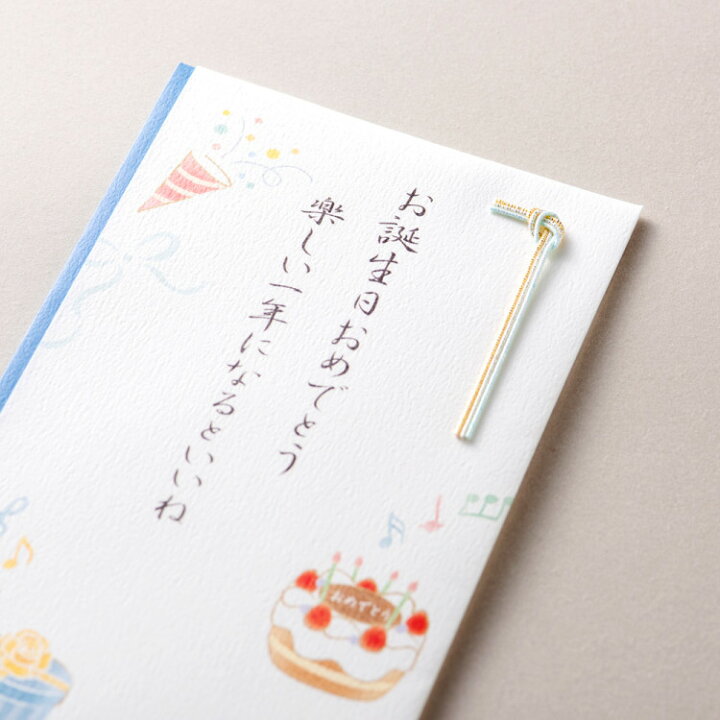 お誕生日おめでとう
楽しい一年になるといいね
おめでとう